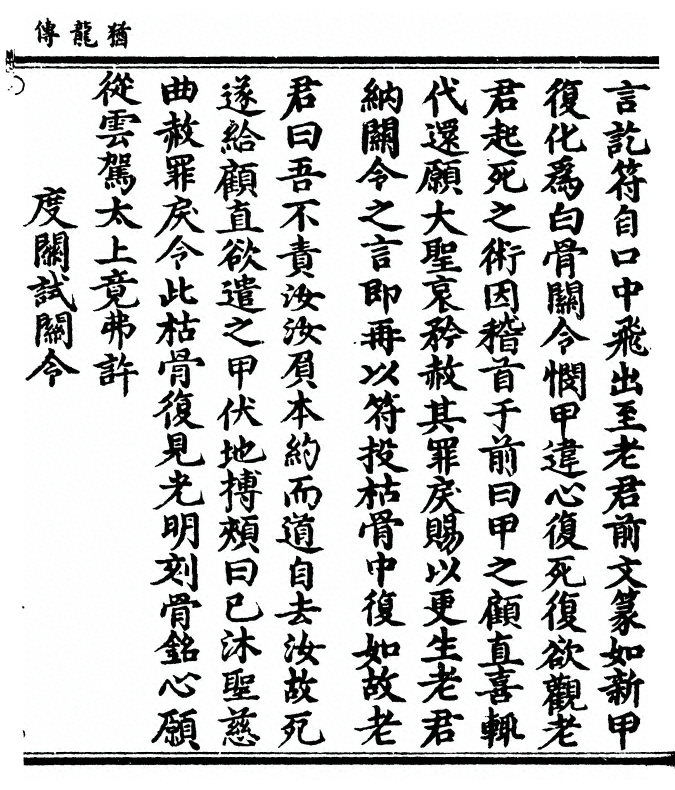 猶龍傳
言訖符自口中飛出至老君前文篆如新甲
復化為白骨關令憫甲違心復死復欲觀老
君起死之術因稽首于前曰甲之顧直喜輒
代還願大聖哀矜赦其罪戾賜以更生老君
納關令之言即再以符投枯骨中復如故老
君曰吾不責汝汝負本約而道自去汝故死
遂給顧直欲遣之甲伏地搏頰曰已沐聖慈
曲赦罪戾令此枯骨復見光明刻骨銘心願
從雲駕太上竟弗許
度關試關令